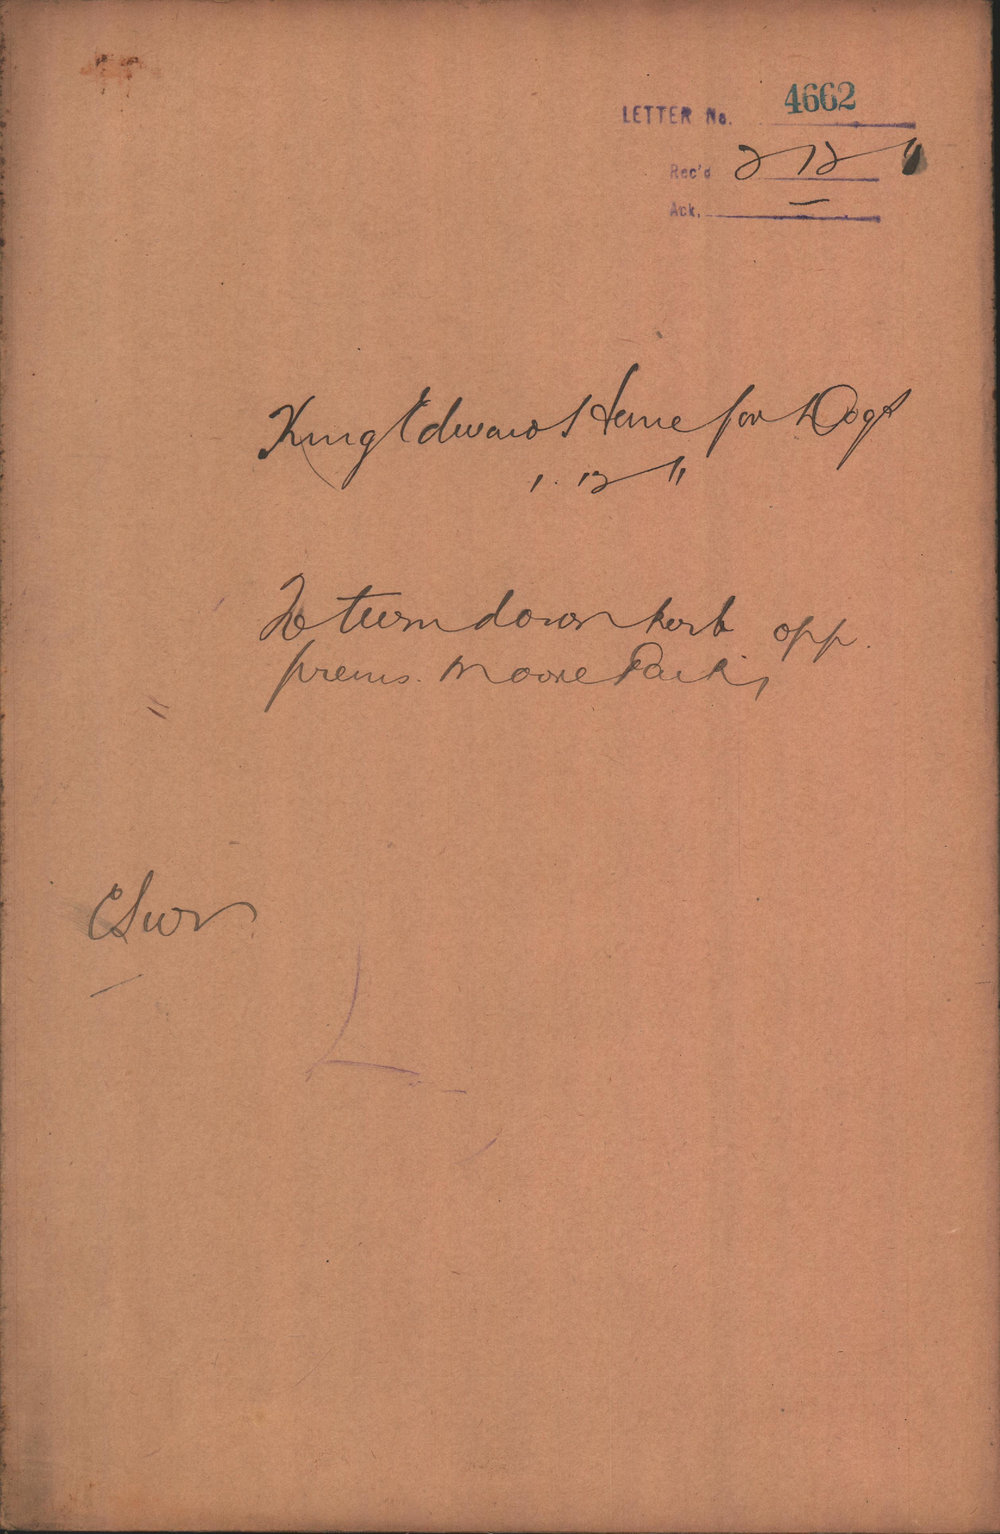 LETTER No. 4662
Rec'd 2 12 11
Ack. —
King Edward Home for Dogs
1. 12 11
To turn down kerb opp.
prems. Moore Park,